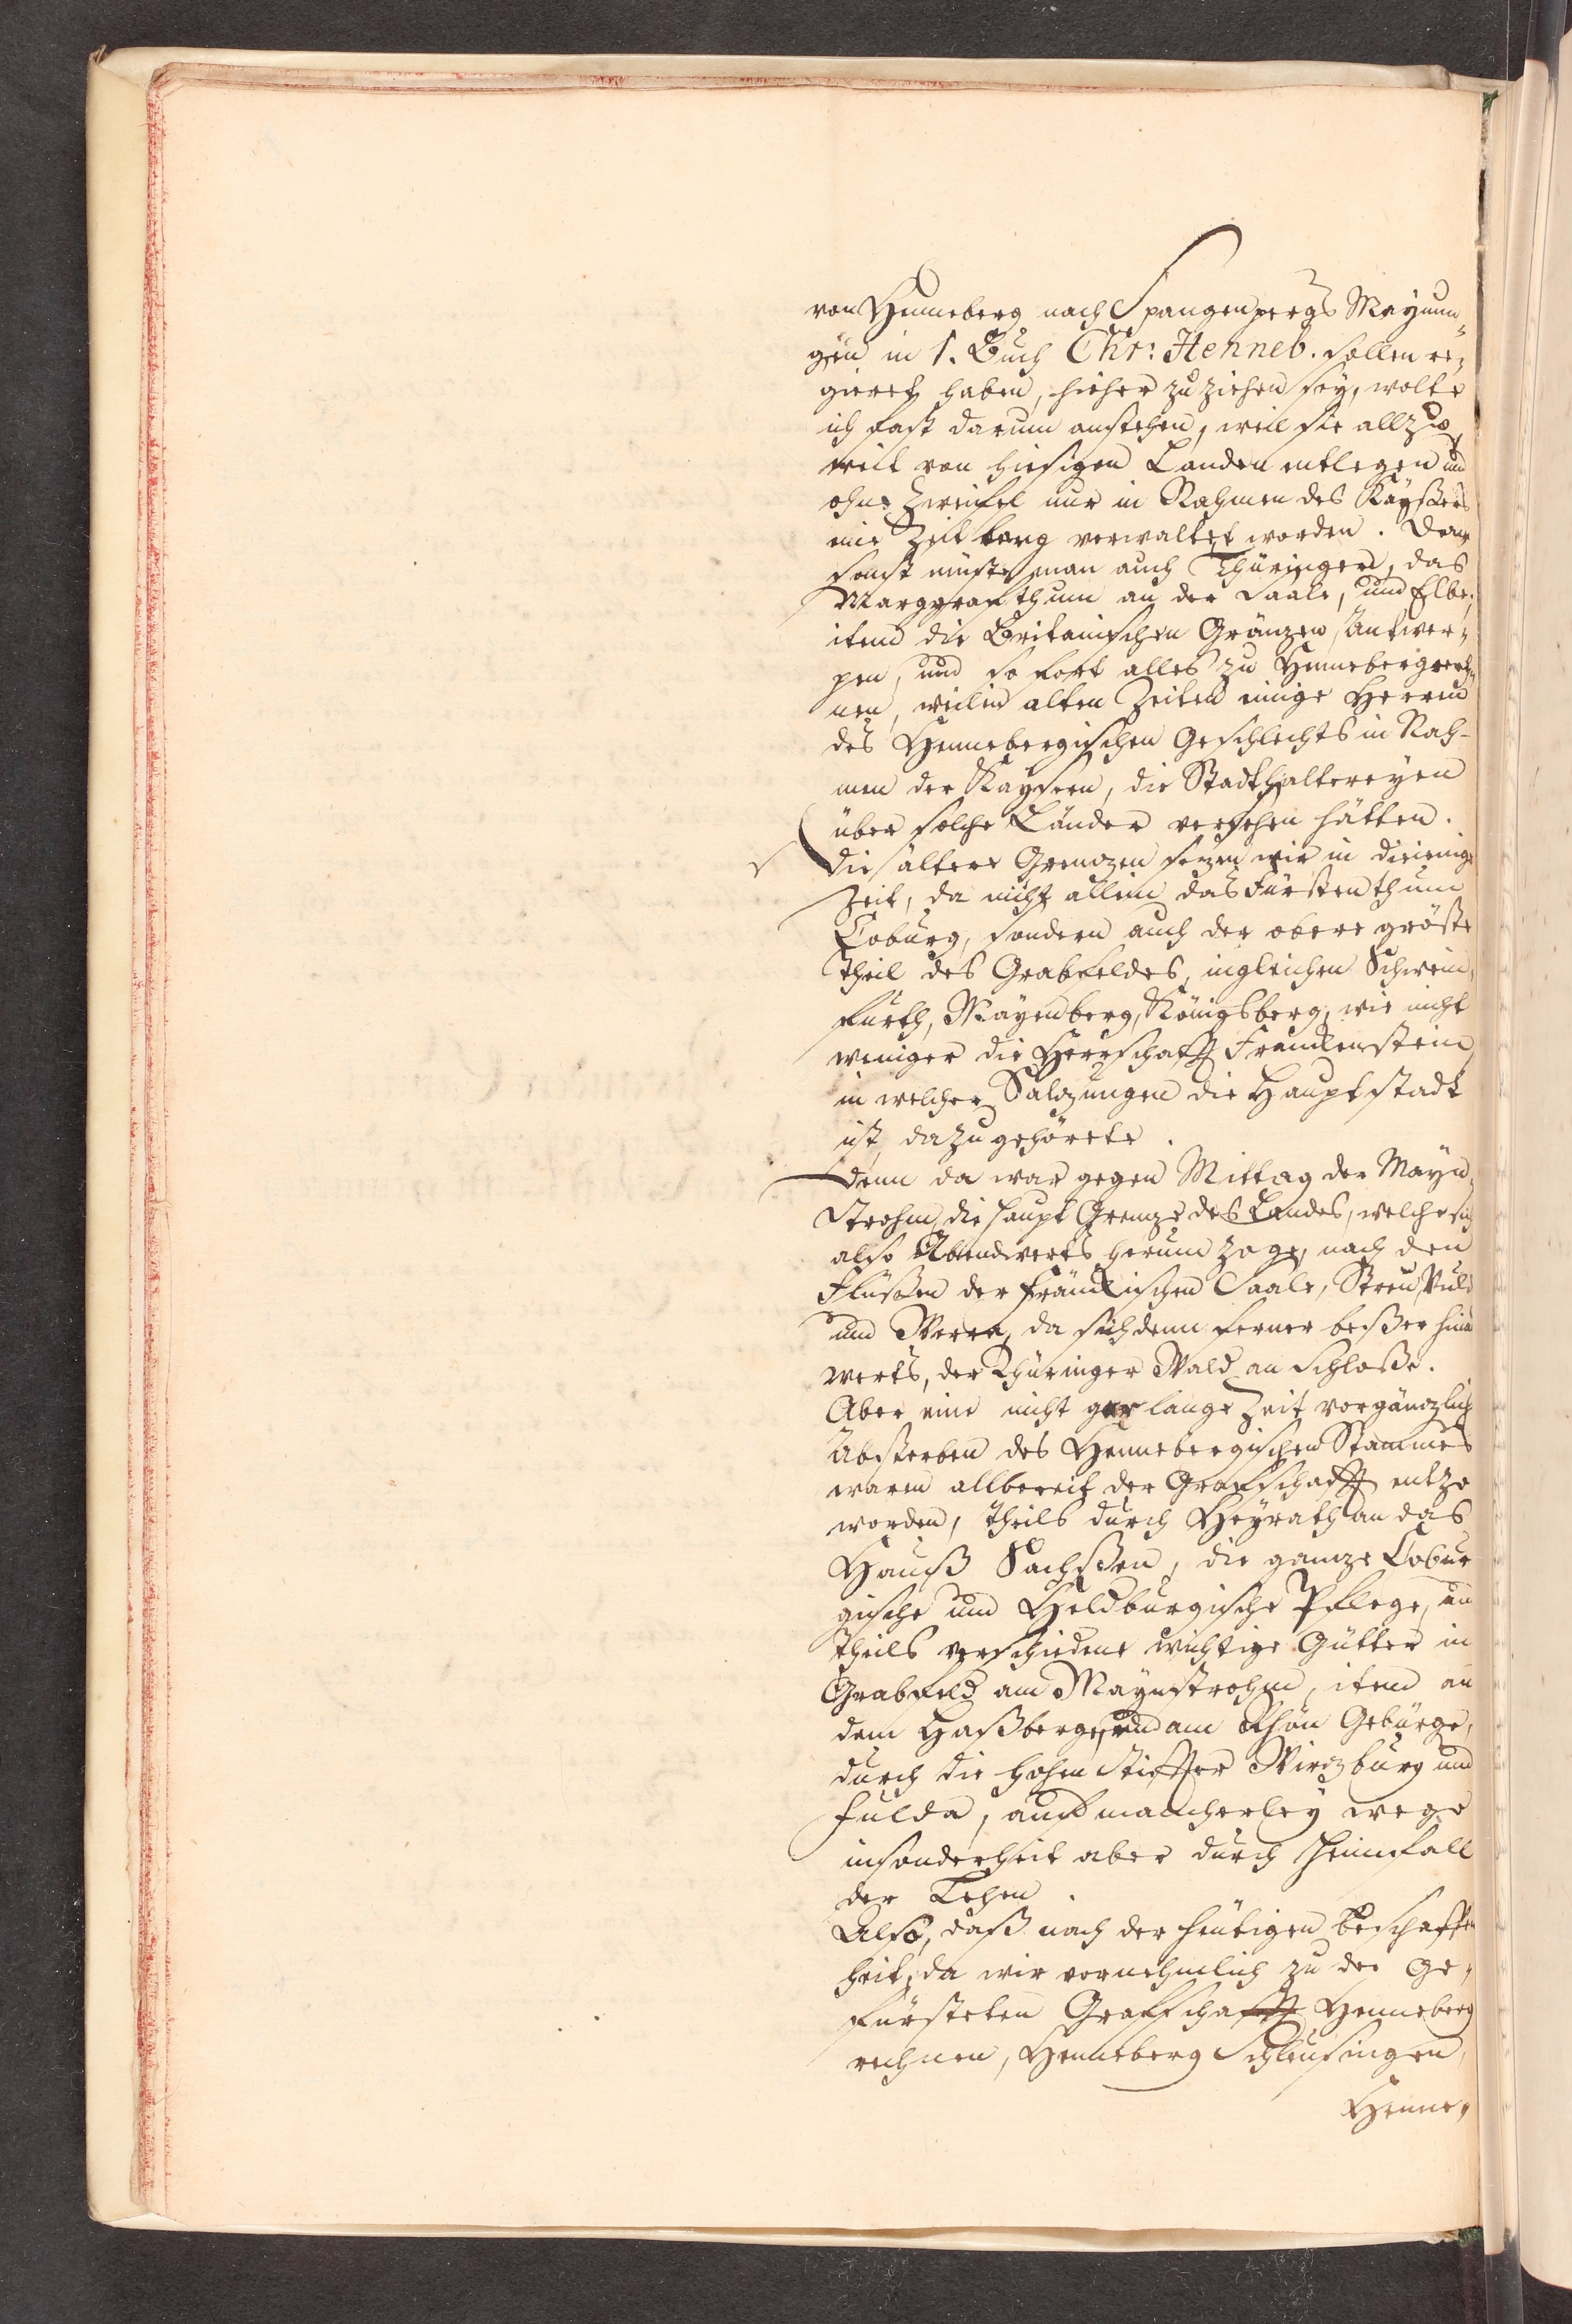 von Henneberg nach Spangenpergs Meynun„
gen in 1. Buch Chr: Henneb. sollen re„
gieret haben, hieher zu ziehen sey, wolte
ich fast darum anstehen, weil sie allzu
weit von hiesigen Landen entlegen und
ohne Zweifel nur in Nahmen des Kaysers
eine Zeit lang verwaltet worden. Denn
sonst müste man auch Thüringen, das
Marggrafthum an der Saale, und Elbe,
item die Britanischen Gränzen, Antwer„
pen, und so fort alles zu Henneberg rech„
nen, weil in alten Zeiten einige Herren
des Hennebergischen Geschlechts in Nah-
men der Kaysern, die Stadthaltereyen
über solche Länder versehen hätten.
die ältere Grenzen sezen wir in dieienige
Zeit, da nicht allein das Fürstenthum
Coburg, sondern auch der obere gröste
theil des Grabfeldes, ingleichen Schwein„
furth, Mayenberg, Königsberg, wie nicht
weniger die Herrschafft Franckenstein
in welcher Salzungen die Hauptstadt
ist, dazu gehörete.
denn da war gegen Mittag der Mayn„
Strohm, die haupt Grenze des Landes, welche sich
also Abendwerts herum zoge, nach den
Flüßen der fränckischen Saale, Streu, Vuld
und Werra, da sich denn ferner beßer hin
werts, der Thüringer Wald an schloße.
Aber eine nicht gar lange Zeit vor gänzlich
Absterben des Hennebergischen Stammes
waren allbereit der Grafschafft entzo
worden, theils durch Heyrath an das
Hauß Sachßen, die ganze Cobur
gische und Heldburgische Pflege, un
theils verschiedene wichtige Gütter in
Grabfeld am Maynstrohm, item an
dem Haßberge, und am Rhön Gebürge,
durch die hohen Stiffter Wirzburg und
Fulda, auf mancherley wege
insonderheit aber durch Heimfall
der Lehen.
Also, daß nach der heutigen beschaffen
heit, da wir vornehmlich zu der Ge„
fürsteten Grafschafft Henneberg
rechnen, Henneberg Schleusingen,
Henne„